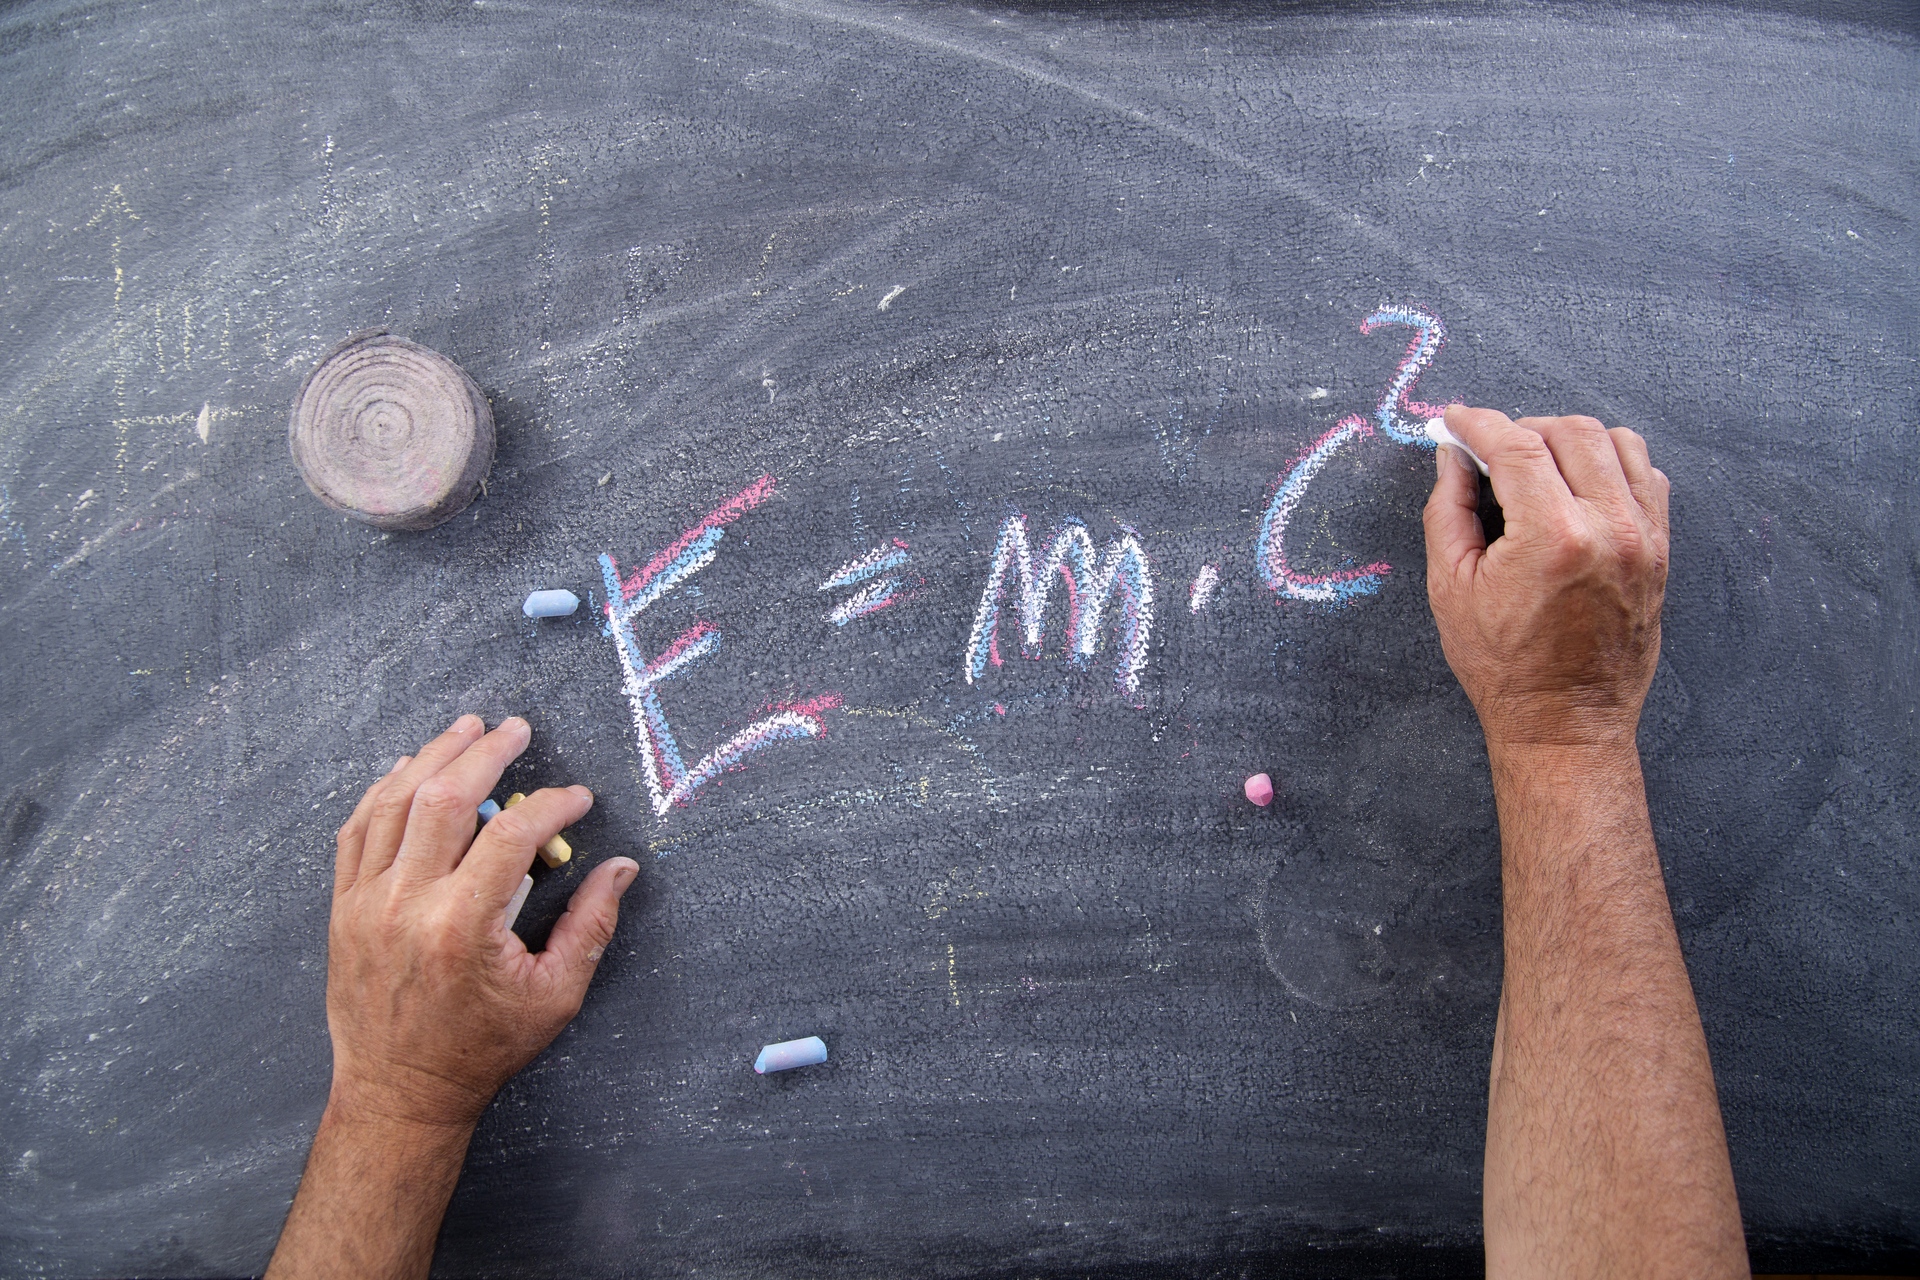 E = m . c²